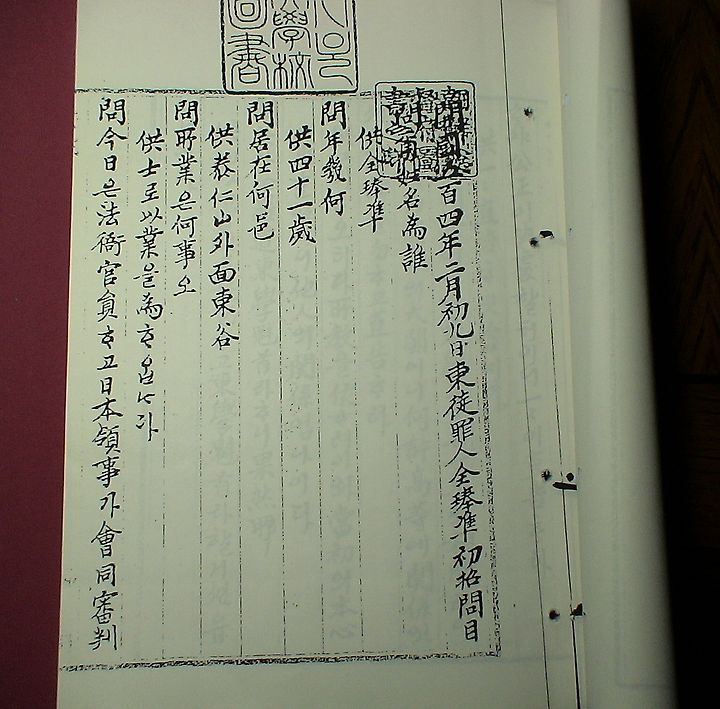 開國五百四年二月初九日東徒罪人全琫準初招問目
姓名為誰
供全琫準
問年幾何
供四十一歲
問居在何邑
供泰仁山外面東谷
問所業은何事오
供士로以業을為ᄒᆞ옵ᄂᆞ다
問今日은法衙官員ᄒᆞ고日本領事가會同審判
邑
學校
圖書